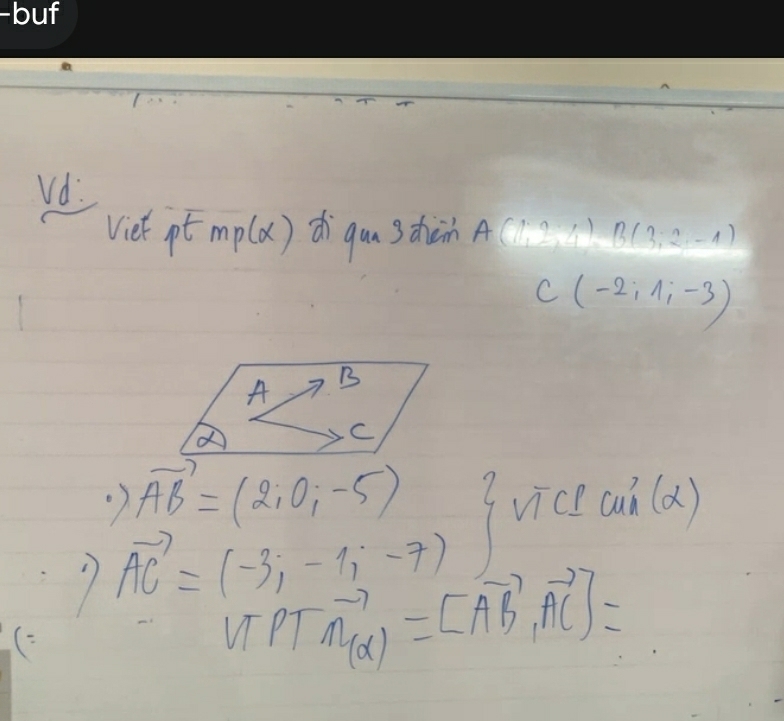 -buf
Vd:
Viết pt mp(α) đi qua 3 điểm A(1;2;4) B(3;2;-1)
C (-2;1;-3)
A
B
α
C
·) AB = (2;0;-5)
} VTCP của (α)
·) AC = (-3; -1; -7)
VTPT n(α) = [AB, AC] =
(=